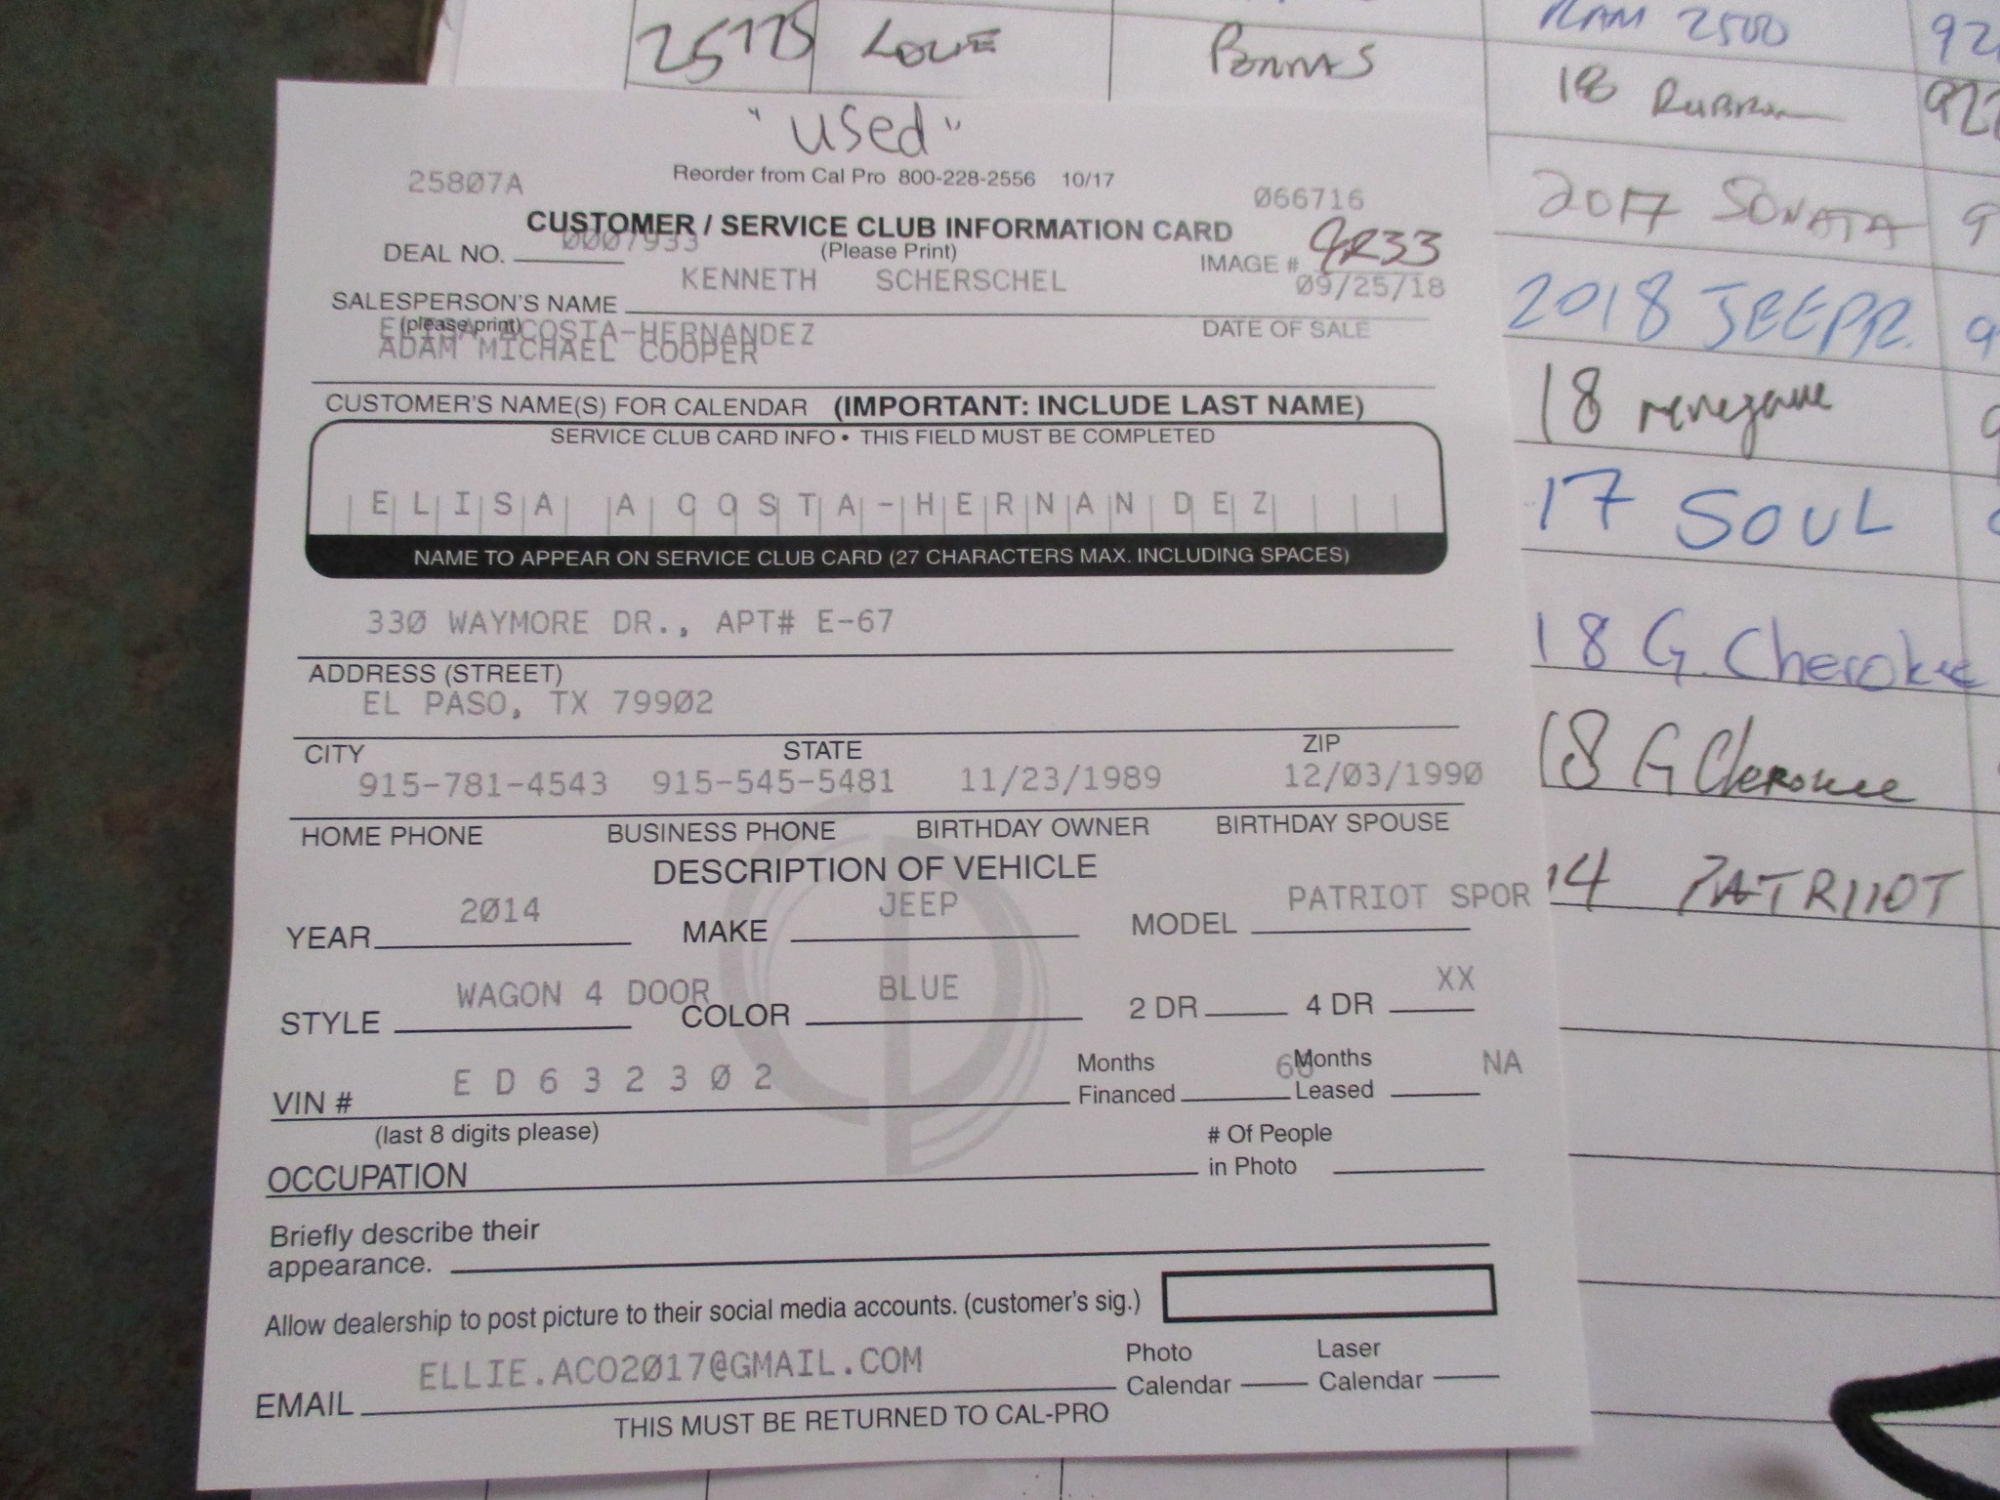 RAM 2500 92
25775 LOVE
18 92
"used"
25807A Reorder from Cal Pro 800-228-2556 10/17 066716
CUSTOMER / SERVICE CLUB INFORMATION CARD
2017 SONATA 9
DEAL NO. 0007933 (Please Print) IMAGE # 9R33
KENNETH SCHERSCHEL 09/25/18
SALESPERSON'S NAME
(please print) DATE OF SALE
2018 JEEP R. 9
ELISA ACOSTA-HERNANDEZ
ADAM MICHAEL COOPER
CUSTOMER'S NAME(S) FOR CALENDAR (IMPORTANT: INCLUDE LAST NAME)
18 renegade
SERVICE CLUB CARD INFO • THIS FIELD MUST BE COMPLETED
ELISA ACOSTA-HERNANDEZ
17 SOUL
NAME TO APPEAR ON SERVICE CLUB CARD (27 CHARACTERS MAX. INCLUDING SPACES)
330 WAYMORE DR., APT# E-67
18 G. Cherokee
ADDRESS (STREET)
EL PASO, TX 79902
CITY STATE ZIP
18 G Cherokee
915-781-4543 915-545-5481 11/23/1989 12/03/1990
HOME PHONE BUSINESS PHONE BIRTHDAY OWNER BIRTHDAY SPOUSE
DESCRIPTION OF VEHICLE
14 PATRIIOT
2014 JEEP PATRIOT SPOR
YEAR MAKE MODEL
WAGON 4 DOOR BLUE XX
STYLE COLOR 2 DR 4 DR
ED632302 Months Financed Months Leased NA
VIN #
(last 8 digits please) # Of People
OCCUPATION in Photo
Briefly describe their
appearance.
Allow dealership to post picture to their social media accounts. (customer's sig.)
ELLIE.ACO2017@GMAIL.COM Photo Laser
EMAIL Calendar Calendar
THIS MUST BE RETURNED TO CAL-PRO